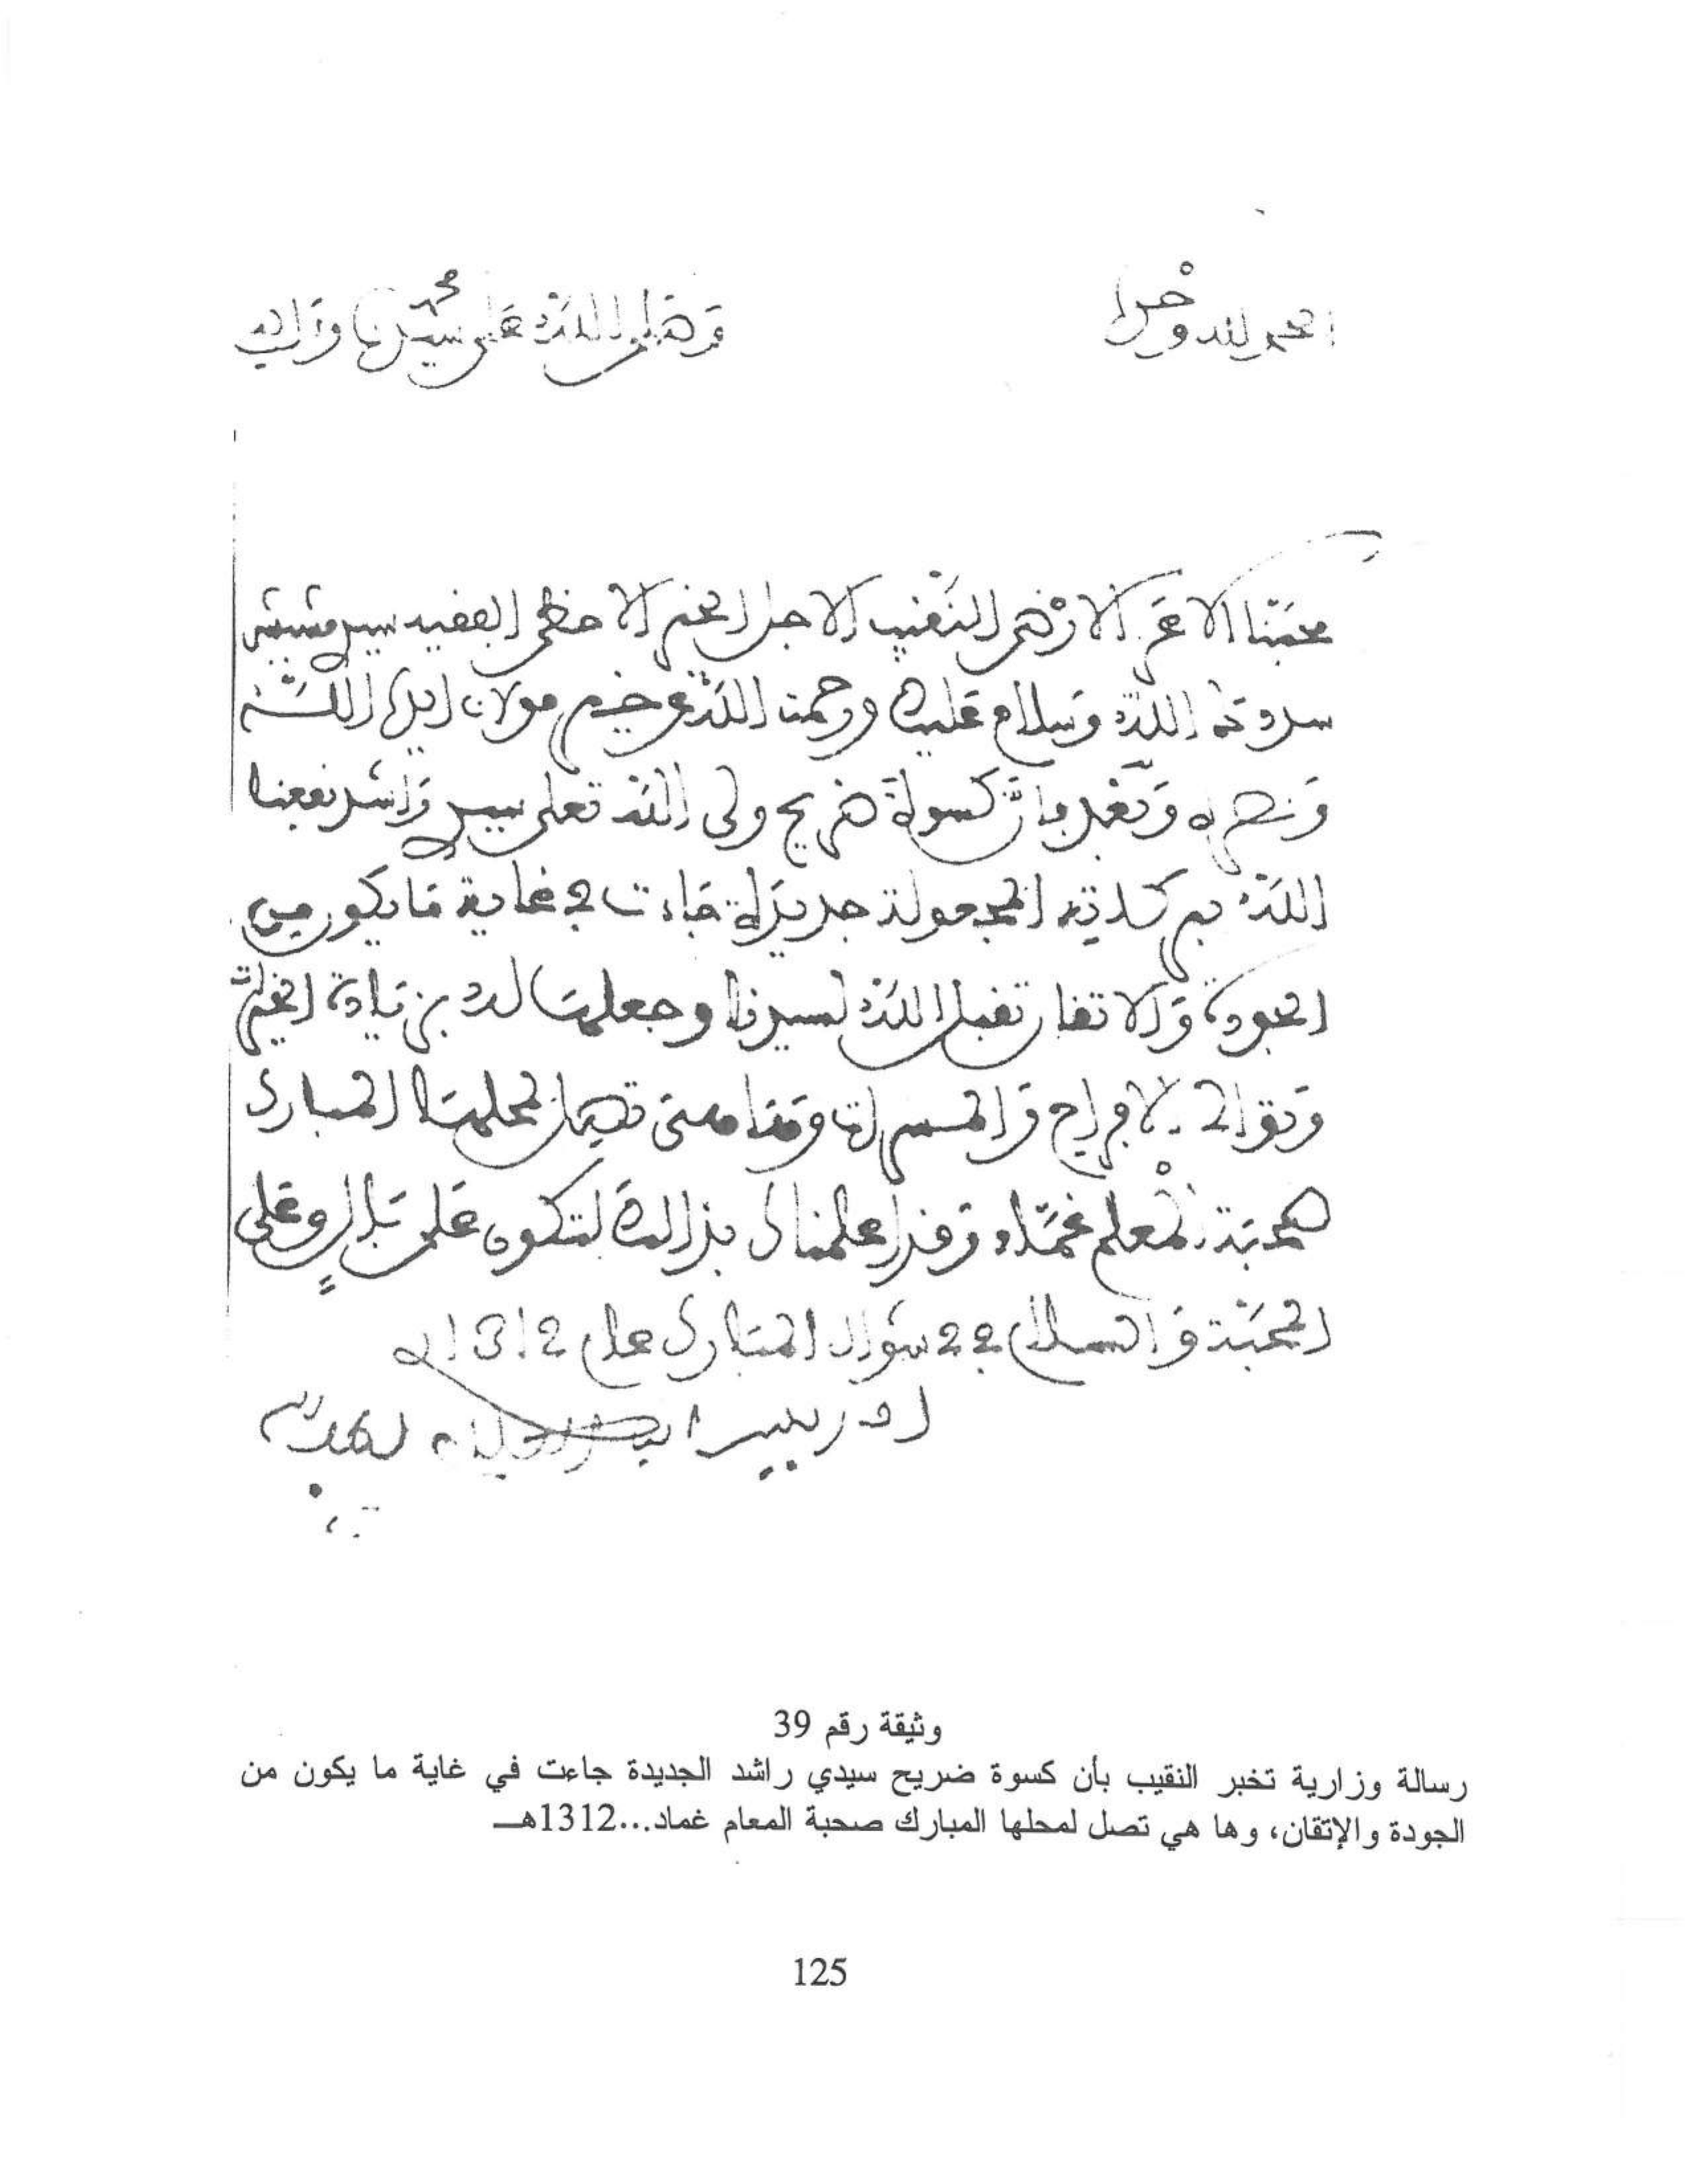 الحمد لله وحده
وصلى الله على سيدنا محمد وآله
محبنا الاعز الارضى النقيب الاجل الخير الاحظى الفقيه سيدي
الله وسلام عليك ورحمت الله عن خير مولانا ايده الله
ونصره وبعد فان كسوة ضريح ولي الله تعلى سيدي راشد نفعنا
الله ببركاته المجعولة جديدة جاءت في غاية ما يكون من
الجودة والاتقان تقبل الله لسيدنا وجعلها له في زيادة الخيرات
وتوالي الافراح والمسرات وها هي تصل لمحلها المبارك
صحبة المعلم غماد وقد اعلمناك بذالك لتكون على بال وعلى
المحبة والسلام في 22 شوال المبارك عام 1312
وثيقة رقم 39
رسالة وزارية تخبر النقيب بأن كسوة ضريح سيدي راشد الجديدة جاءت في غاية ما يكون من
الجودة والإتقان، وها هي تصل لمحلها المبارك صحبة المعام غماد...1312هـ
125